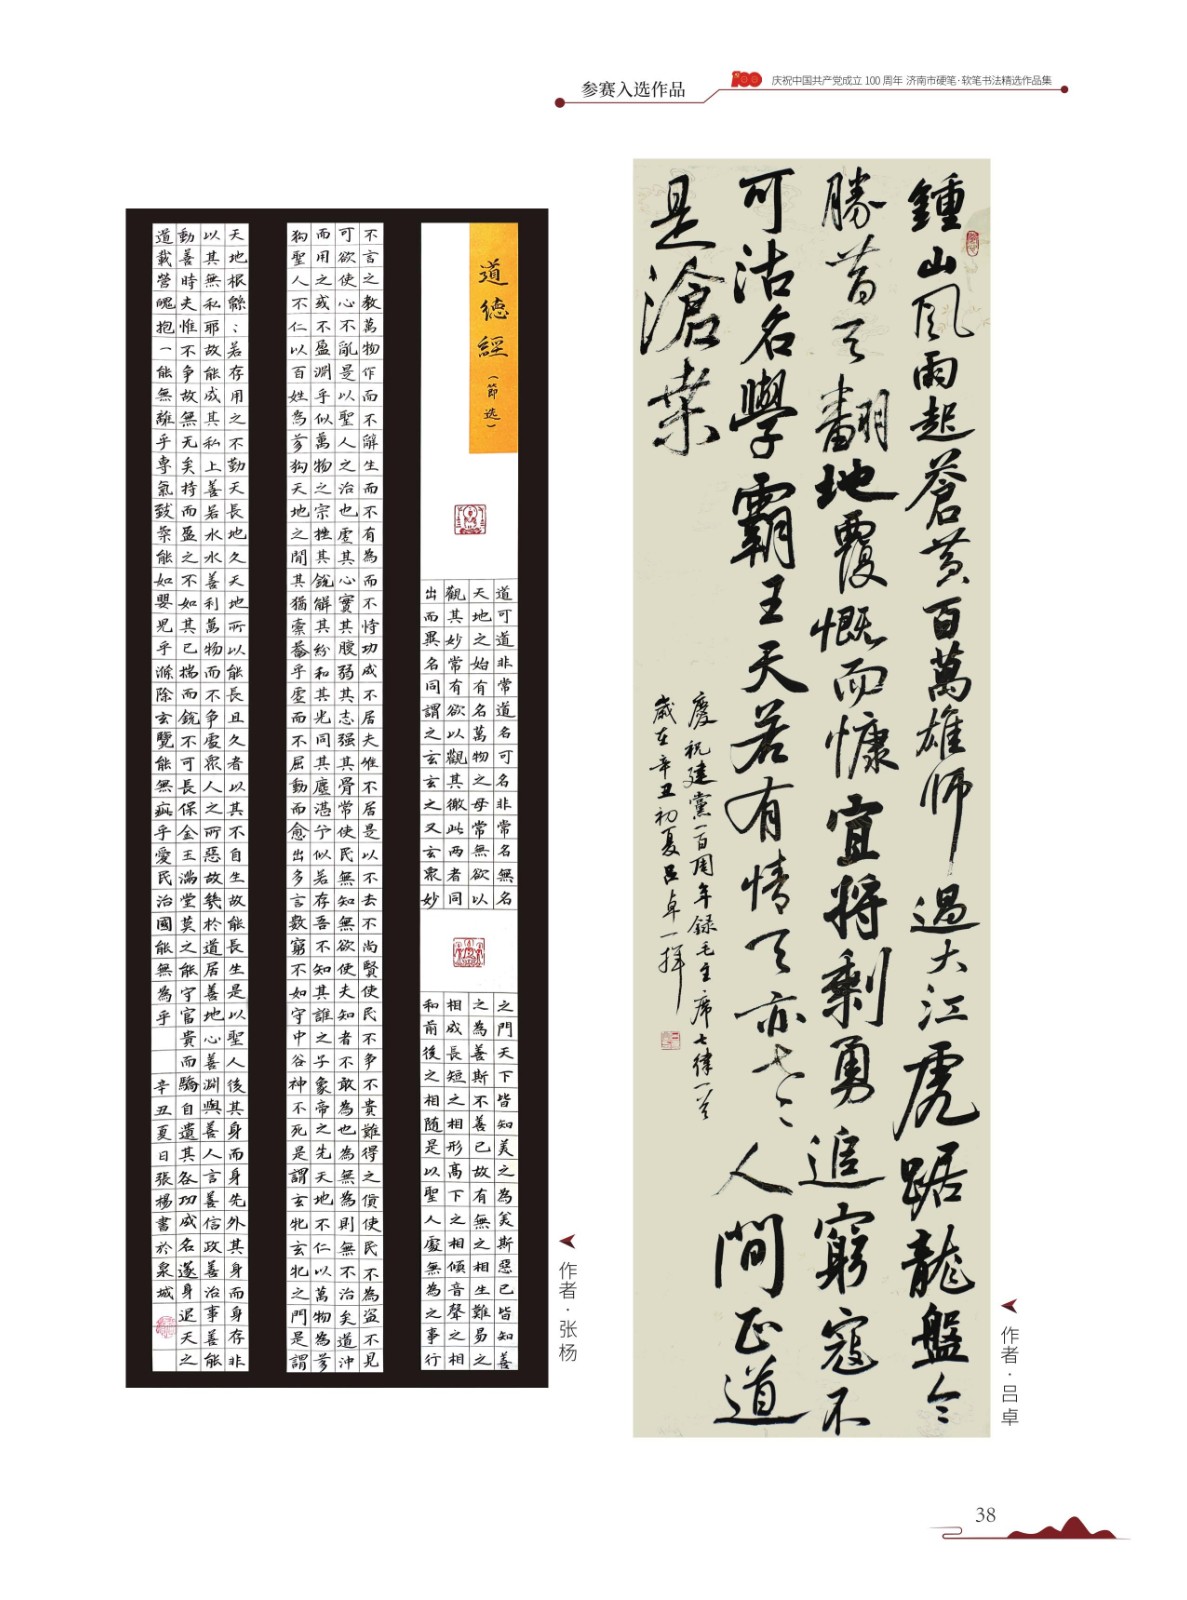 参赛入选作品
100
庆祝中国共产党成立 100 周年 济南市硬笔·软笔书法精选作品集
鍾山風雨起蒼黃百萬雄师過大江虎踞龍盤今
勝昔天翻地覆慨而慷宜將剩勇追窮寇不
可沽名學霸王天若有情天亦老人間正道
是滄桑
慶祝建黨一百周年録毛主席七律一首
歲在辛丑初夏吕卓一揮
作者·吕卓
道德經（節选）
道可道非常道名可名非常名無名
天地之始有名萬物之母常無欲以
觀其妙常有欲以觀其徼此两者同
出而異名同謂之玄玄之又玄衆妙
之門天下皆知美之為美斯惡已皆知善
之為善斯不善已故有無之相生難易之
相成長短之相形高下之相傾音聲之相
和前後之相随是以聖人處無為之事行
不言之教萬物作而不辭生而不有為而不恃功成不居夫惟不居是以不去不尚賢使民不争不貴難得之貨使民不為盜不見
可欲使心不亂是以聖人之治也虚其心實其腹弱其志强其骨常使民無知無欲使夫知者不敢為也為無為則無不治矣道沖
而用之或不盈淵乎似萬物之宗挫其銳解其紛和其光同其塵湛兮似若存吾不知其誰之子象帝之先天地不仁以萬物為芻
狗聖人不仁以百姓為芻狗天地之間其猶橐龠乎虚而不屈動而愈出多言數窮不如守中谷神不死是謂玄牝玄牝之門是謂
天地根緜；若存用之不勤天長地久天地所以能長且久者以其不自生故能長生是以聖人後其身而身先外其身而身存非
以其無私耶故能成其私上善若水水善利萬物而不争處衆人之所惡故幾於道居善地心善淵與善人言善信政善治事善能
動善時夫惟不争故無尤矣持而盈之不如其已揣而銳不可長保金玉满堂莫之能守官貴而驕自遺其咎功成名遂身退天之
道載營魄抱一能無離乎専氣致柔能如嬰兒乎滌除玄覽能無疵乎愛民治國能無為乎 辛丑夏日張楊書於泉城
作者·张杨
38